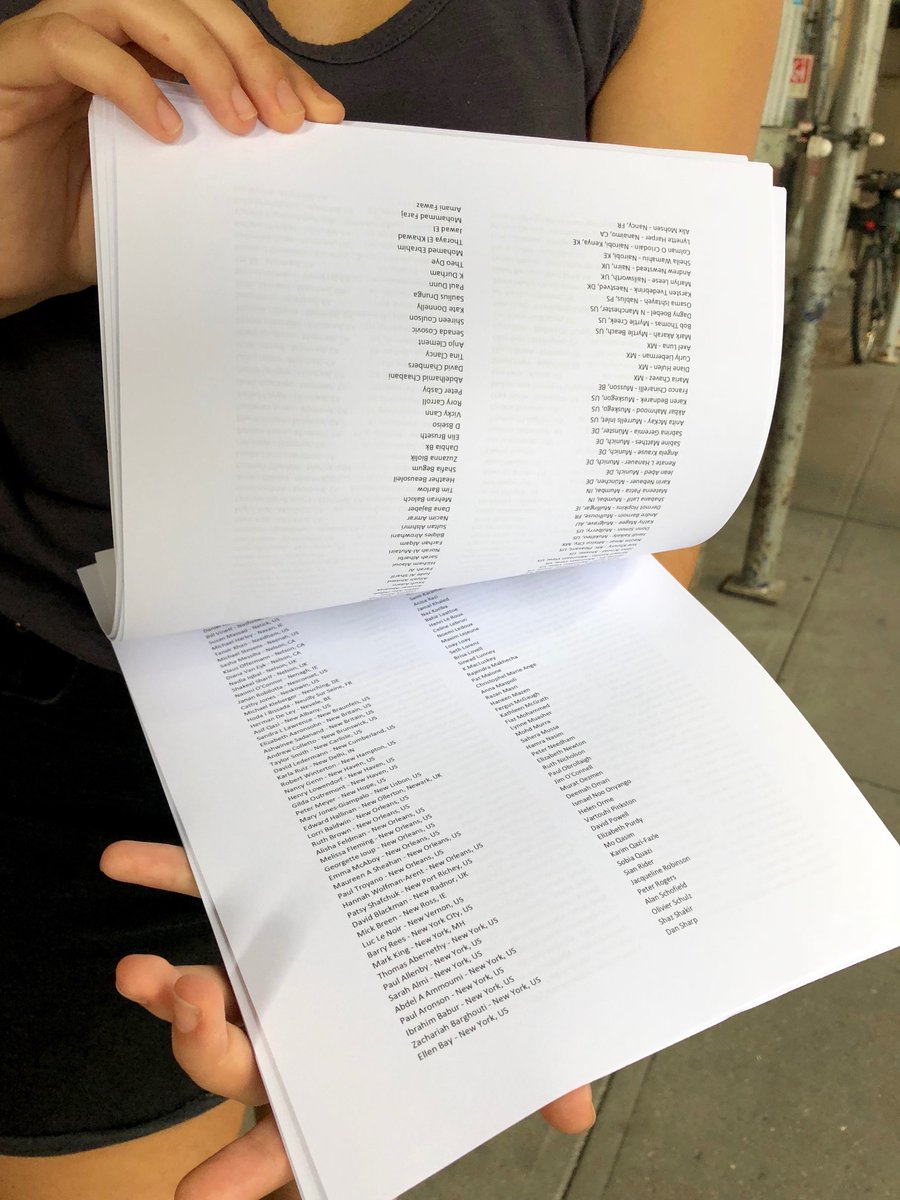 Kathy Magee - Mulgrave, AU
Andre Barnoin - Mulhouse, FR
Dermot Hopkins - Mullingar, IE
Shabana Latif - Mumbai, IN
Mateena Patca - Mumbai, IN
Karin Nebauer - München, DE
Jean Abed - Munich, DE
Renate L Hanauer - Munich, DE
Angela Krause - Munich, DE
Sabine Matthes - Munich, DE
Sabrina Geremia - Münster, DE
Anita McKay - Murrells Inlet, US
Akbar Mahmood - Muskego, US
Karen Bednarek - Muskegon, US
Franco Chinarchi - Musson, BE
Maria Chavez - MX
Diane Hulen - MX
Curly Lieberman - MX
Axel Luna - MX
Mark Akarah - Myrtle Beach, US
Bob Thomas - Myrtle Creek, US
Dagny Boebel - N Manchester, US
Osama Ishtayeh - Nablus, PS
Karsten Tvedebrink - Naestved, DK
Marlyn Leese - Nailsworth, UK
Andrew Newstead - Nairn, UK
Sheila Wamahiu - Nairobi, KE
Colman O Criodain - Nairobi, Kenya, KE
Lynette Harper - Nanaimo, CA
Alix Mohsen - Nancy, FR
Farah Al
Hicham Alaoui
Sarah Alharbi
Norah Al-Mutairi
Farhan Algam
Bilqies Alrowhani
Sultan Alshmri
Nacim Amrar
Dana Bajaber
Mehran Baloch
Tim Barlow
Heather Beausoleil
Shafia Begum
Zuzanna Biolik
Dahbia Bk
Elin Bruseth
D Bseiso
Vicky Cann
Rory Carroll
Peter Casby
Abdelhamid Chaabani
David Chambers
Tina Clancy
Anjo Clement
Senada Cosovic
Shireen Coulson
Kate Donnelly
Saulius Drunga
Paul Dunn
K Durham
Theo Dye
Mohamed Ebrahim
Thoraya El Khawad
Jawad El
Mohammad Faraj
Amani Fawaz
Susan Massad - Natick, US
Michael Harley - Navan, IE
Tamar Khan - Needham, US
Michael Stevens - Neenah, US
Sasha Messiha - Nelson, CA
Klaus Offermann - Nelson, CA
Diana Van Eyk - Nelson, CA
Nadia Iqbal - Nelson, UK
Shakeel Sharif - Nelson, UK
Naomi O'Connor - Nenagh, IE
Janan Robilotta - Nesconset, US
Cathy Jones - Neskowin, US
Michael Kleberger - Neuching, DE
Hoda I Bissada - Neuilly Sur Seine, FR
Herman De Ley - Nevele, BE
Asif Qazi - New Albany, US
Sandra L Lawrence - New Braunfels, US
Elizabeth Aaronsohn - New Britain, US
Ashwinee Sadanand - New Britain, US
Andrew Colletto - New Brunswick, US
Taylor Smith - New Carlisle, US
David Ledermann - New Cumberland, US
Karla Ruiz - New Delhi, IN
Robert Winterton - New Hampton, US
Nancy Genn - New Haven, US
Henry Lowendorf - New Haven, US
Gilda Outremont - New Haven, US
Peter Meyer - New Hope, US
Mary Jones-Giampalo - New Lisbon, US
Edward Hallinan - New Ollerton, Newark, UK
Lorri Baldwin - New Orleans, US
Ruth Brown - New Orleans, US
Alisha Feldman - New Orleans, US
Melissa Fleming - New Orleans, US
Georgette Ioup - New Orleans, US
Emma McAboy - New Orleans, US
Maureen A Sheahan - New Orleans, US
Paul Troyano - New Orleans, US
Hannah Wolfman-Arent - New Orleans, US
Patsy Shafchuk - New Port Richey, US
David Blackman - New Radnor, UK
Mick Breen - New Ross, IE
Luc Le Noir - New Vernon, US
Barry Rees - New York City, US
Mark King - New York, MH
Thomas Abernethy - New York, US
Paul Allenby - New York, US
Sarah Almi - New York, US
Abdel A Ammoumi - New York, US
Paul Aronson - New York, US
Ibrahim Babur - New York, US
Zachariah Barghouti - New York, US
Ellen Bay - New York, US
Jamal Khaled
Naz Koniba
Bahie Laattoe
Henri Le Roux
Celine Lebrun
Noemi Ledoux
Maxim Lejeune
Loay Loay
Seth Lorenz
Brisa Lovell
Sinead Lunney
K MacLuskey
Rajendra Makhecha
Pat Malone
Christophel Marie Ange
Anna Maspoli
Razan Masri
Haneen Mazen
Fergus McGaugh
Kathleen McGrath
Fiaz Mohammed
Lynne Muasher
Mohd Murra
Sahera Mussa
Hamra Nasim
Peter Needham
Elizabeth Newton
Ruth Nicholson
Paul Obrollaigh
Jim O'Connell
Murat Oezmen
Deemah Omari
Ismael Noo Onyango
Helen Orme
Vartouhi Pinkston
David Powell
Elizabeth Purdy
Mo Qasim
Karim Qazi-Fazle
Sobia Quazi
Sian Rider
Jacqueline Robinson
Peter Rogers
Alan Schofield
Olivier Schulz
Shaz Shakir
Dan Sharp